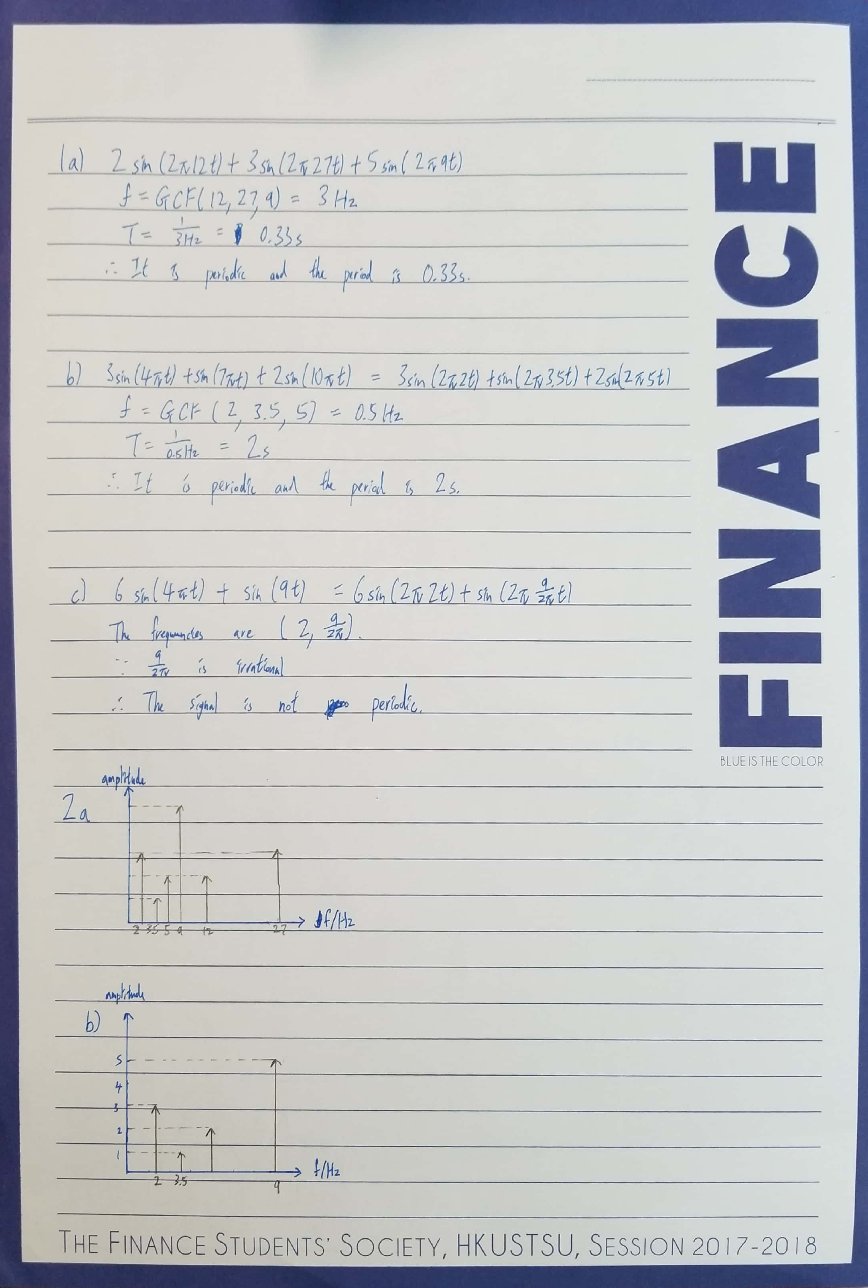 1a) 2 sin (2π12t) + 3 sin (2π27t) + 5 sin (2π9t)
f = GCF(12, 27, 9) = 3 Hz
T = 1/3Hz = 0.33s
∴ It is periodic and the period is 0.33s.
b) 3 sin (4πt) + sin (7πt) + 2 sin (10πt) = 3 sin (2π2t) + sin (2π3.5t) + 2 sin (2π5t)
f = GCF (2, 3.5, 5) = 0.5 Hz
T = 1/0.5Hz = 2s
∴ It is periodic and the period is 2s.
c) 6 sin (4πt) + sin (9t) = 6 sin (2π2t) + sin (2π 9/2π t)
The frequencies are (2, 9/2π).
∵ 9/2π is irrational
∴ The signal is not periodic.
FINANCE
BLUE IS THE COLOR
amplitude
2a
f/Hz
2 3.5 5 9 12 27
amplitude
b)
5
4
3
2
1
f/Hz
2 3.5 9
THE FINANCE STUDENTS' SOCIETY, HKUSTSU, SESSION 2017-2018